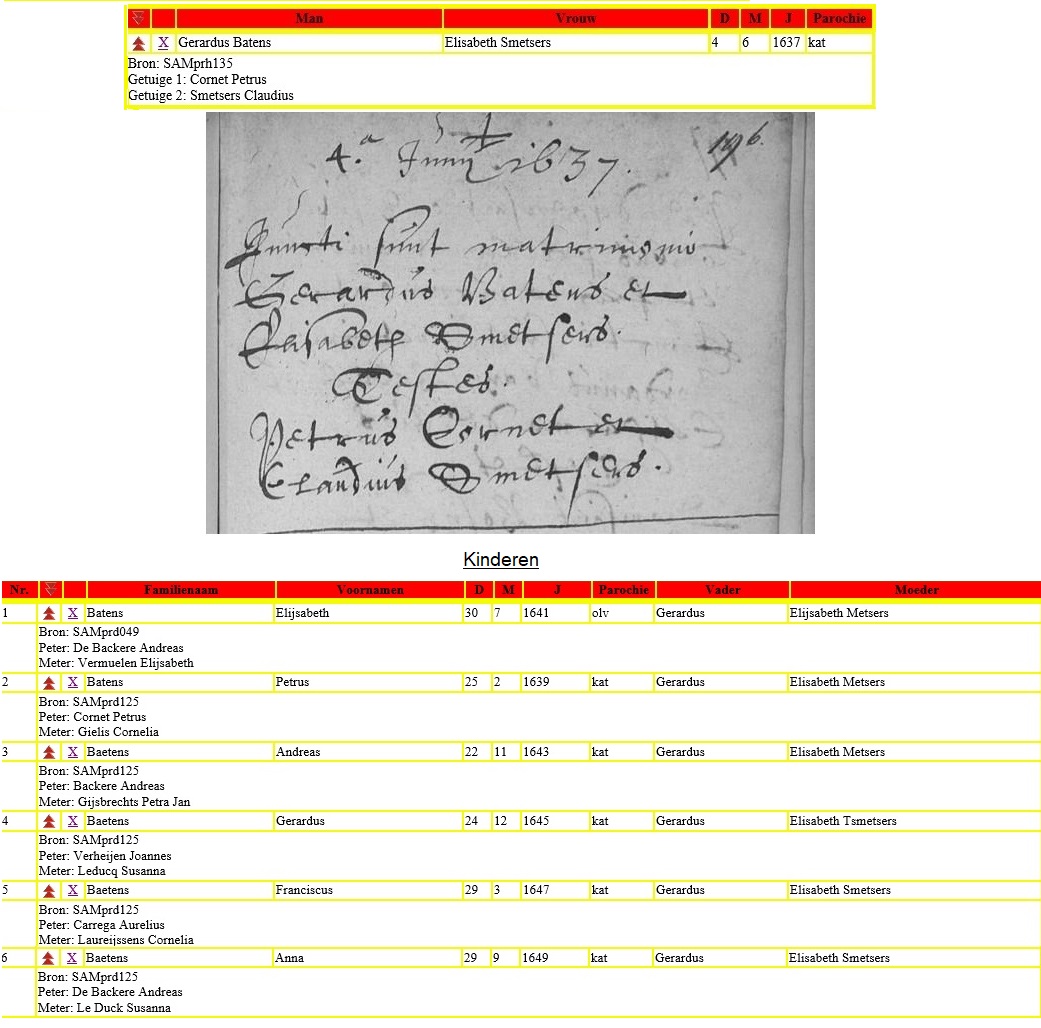 Man Vrouw D M J Parochie
X Gerardus Batens Elisabeth Smetsers 4 6 1637 kat
Bron: SAMprh135
Getuige 1: Cornet Petrus
Getuige 2: Smetsers Claudius
4.a Junij 1637. 196.
Juncti sunt matrimonio
Gerardus Batens et
Elisabeth Smetsers.
Testes.
Petrus Cornet et
Claudius Smetsers.
Kinderen
Nr. Familienaam Voornamen D M J Parochie Vader Moeder
1 X Batens Elijsabeth 30 7 1641 olv Gerardus Elijsabeth Metsers
Bron: SAMprd049
Peter: De Backere Andreas
Meter: Vermuelen Elijsabeth
2 X Batens Petrus 25 2 1639 kat Gerardus Elisabeth Metsers
Bron: SAMprd125
Peter: Cornet Petrus
Meter: Gielis Cornelia
3 X Baetens Andreas 22 11 1643 kat Gerardus Elisabeth Metsers
Bron: SAMprd125
Peter: Backere Andreas
Meter: Gijsbrechts Petra Jan
4 X Baetens Gerardus 24 12 1645 kat Gerardus Elisabeth Tsmetsers
Bron: SAMprd125
Peter: Verheijen Joannes
Meter: Leducq Susanna
5 X Baetens Franciscus 29 3 1647 kat Gerardus Elisabeth Smetsers
Bron: SAMprd125
Peter: Carrega Aurelius
Meter: Laureijssens Cornelia
6 X Baetens Anna 29 9 1649 kat Gerardus Elisabeth Smetsers
Bron: SAMprd125
Peter: De Backere Andreas
Meter: Le Duck Susanna